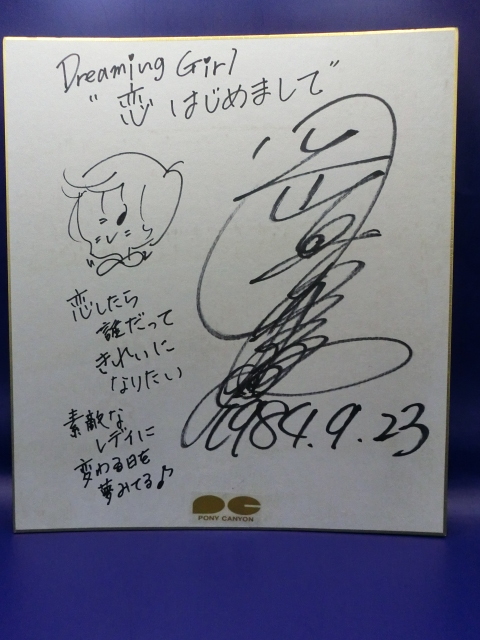 Dreaming Girl
"恋 はじめまして"
恋したら
誰だって
きれいに
なりたい
素敵な
レディに
変わる日を
夢みてる♪
1984.9.23
PC
PONY CANYON